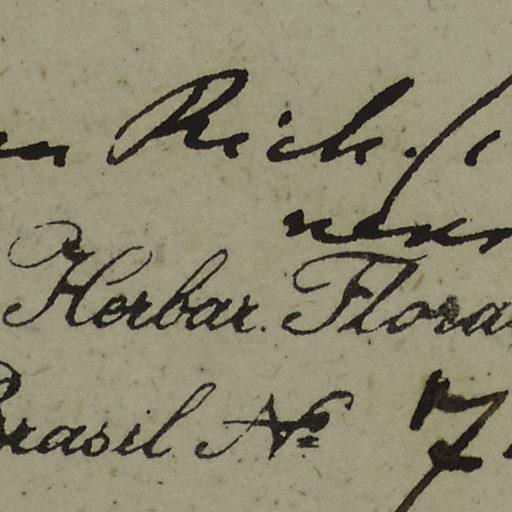 Rich. (
Herbar. Florae
Brasil No 7